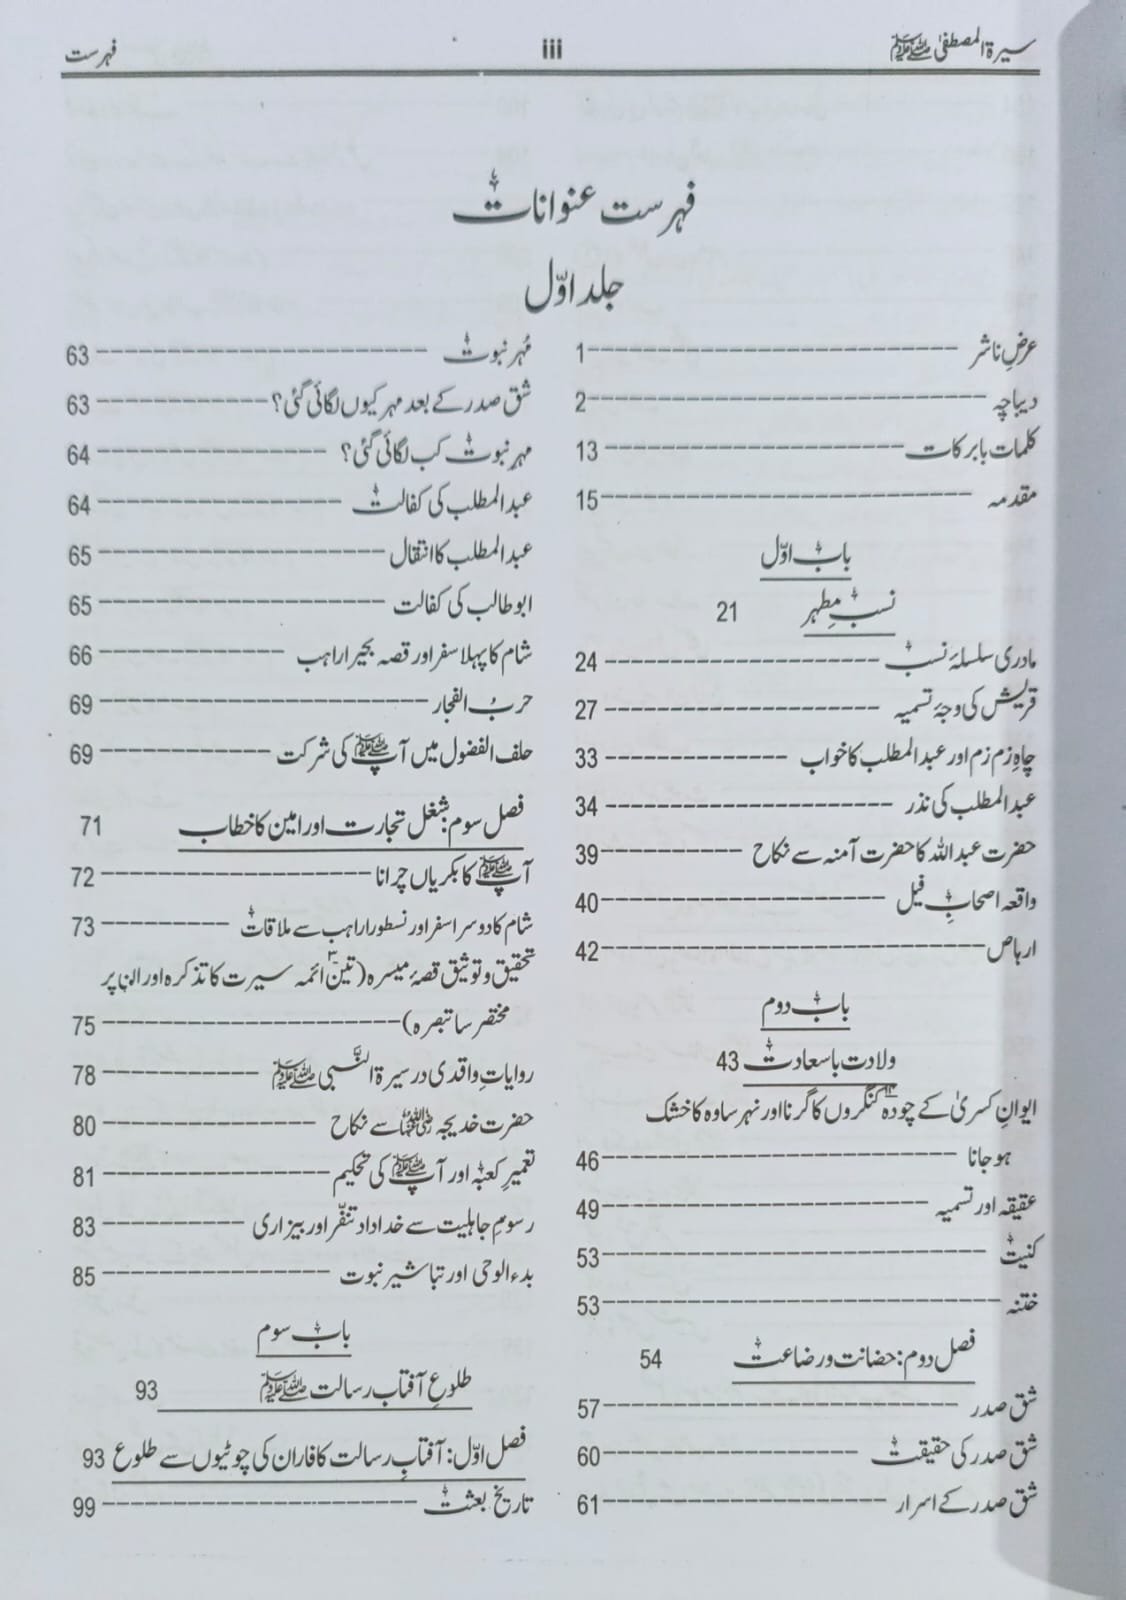 سیرۃ المصطفیٰ ﷺ iii فہرست
فہرست عنوانات
جلد اوّل
عرضِ ناشر ------ 1
دیباچہ ------ 2
کلمات بابرکات ------ 13
مقدمہ ------ 15
باب اوّل
نسب مطہر 21
مادری سلسلۂ نسب ------ 24
قریش کی وجۂ تسمیہ ------ 27
چاہِ زم زم اور عبدالمطلب کا خواب ------ 33
عبدالمطلب کی نذر ------ 34
حضرت عبداللہ کا حضرت آمنہ سے نکاح ------ 39
واقعہ اصحابِ فیل ------ 40
ارہاص ------ 42
باب دوم
ولادت باسعادت 43
ایوانِ کسریٰ کے چودہ۱۴ کنگروں کا گرنا اور نہر ساوہ کا خشک
ہو جانا ------ 46
عقیقہ اور تسمیہ ------ 49
کنیت ------ 53
ختنہ ------ 53
فصل دوم: حضانت و رضاعت 54
شق صدر ------ 57
شق صدر کی حقیقت ------ 60
شق صدر کے اسرار ------ 61
مُہر نبوت ------ 63
شق صدر کے بعد مہر کیوں لگائی گئی؟ ------ 63
مہرِ نبوت کب لگائی گئی؟ ------ 64
عبدالمطلب کی کفالت ------ 64
عبدالمطلب کا انتقال ------ 65
ابوطالب کی کفالت ------ 65
شام کا پہلا سفر اور قصہ بحیرا راہب ------ 66
حربُ الفجار ------ 69
حلف الفضول میں آپ ﷺ کی شرکت ------ 69
فصل سوم: شغل تجارت اور امین کا خطاب 71
آپ ﷺ کا بکریاں چرانا ------ 72
شام کا دوسرا سفر اور نسطورا راہب سے ملاقات ------ 73
تحقیق و توثیق قصۂ میسرہ (تین۳ ائمہ سیرت کا تذکرہ اور ان پر
مختصر سا تبصرہ) ------ 75
روایاتِ واقدی در سیرۃ النَّبی ﷺ ------ 78
حضرت خدیجہ رضی اللہ عنہا سے نکاح ------ 80
تعمیرِ کعبہ اور آپ ﷺ کی تحکیم ------ 81
رسومِ جاہلیت سے خداداد تنفّر اور بیزاری ------ 83
بدء الوحی اور تباشیر نبوت ------ 85
باب سوم
طلوعِ آفتاب رسالت ﷺ 93
فصل اوّل: آفتابِ رسالت کا فاران کی چوٹیوں سے طلوع 93
تاریخ بعثت ------ 99